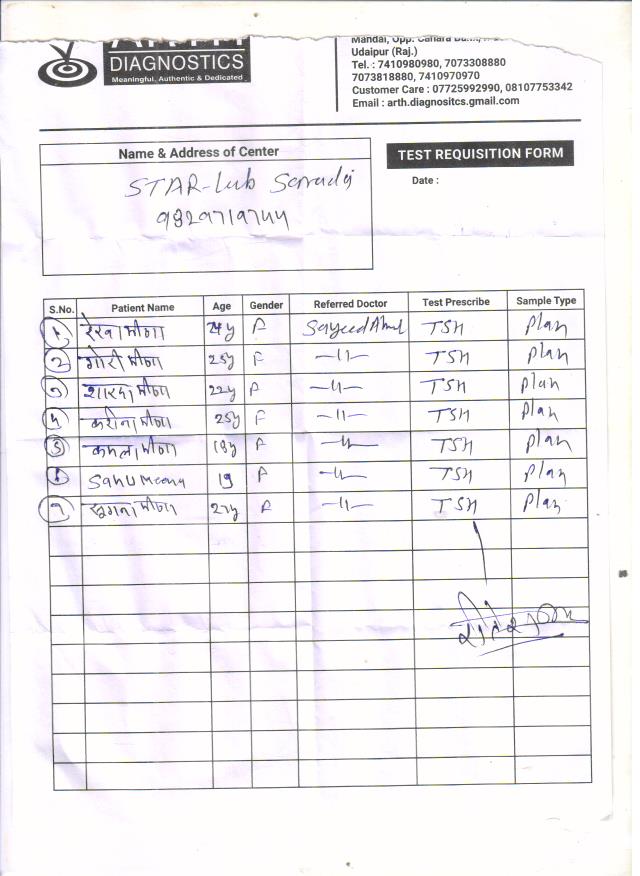 DIAGNOSTICS
Meaningful, Authentic & Dedicated
Udaipur (Raj.)
Tel. : 7410980980, 7073308880
7073818880, 7410970970
Customer Care : 07725992990, 08107753342
Email : arth.diagnositcs.gmail.com
Name & Address of Center
STAR-Lab
9929719744
TEST REQUISITION FORM
Date :
S.No. Patient Name Age Gender Referred Doctor Test Prescribe Sample Type
1 रेखा मीणा 24y F Sayeed TSH Plan
2 गोरी मीणा 25y F —11— TSH Plan
3 शारदा मीणा 22y F —11— TSH Plan
4 करीना मीणा 25y F —11— TSH Plan
5 कमला मीणा 19y F —11— TSH Plan
6 Sanu Meena 19 F —11— TSH Plan
7 मीणा 27y F —11— TSH Plan